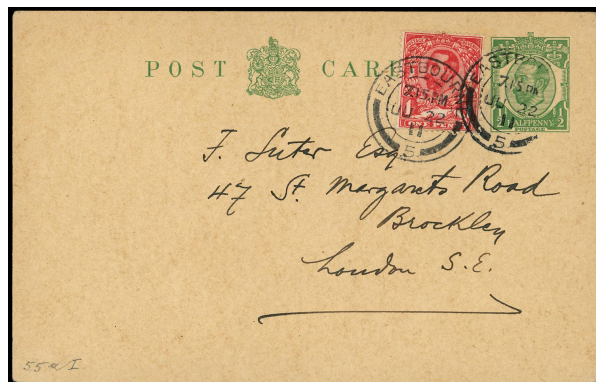 POST CARD
EASTBOURNE
7.15 PM
JU 22
11
5
ONE PENNY
EASTBO
7.15 PM
JU 22
11
5
HALFPENNY
POSTAGE
F. Suter Esq
47 St. Margarets Road
Brockley
London S.E.
55a I